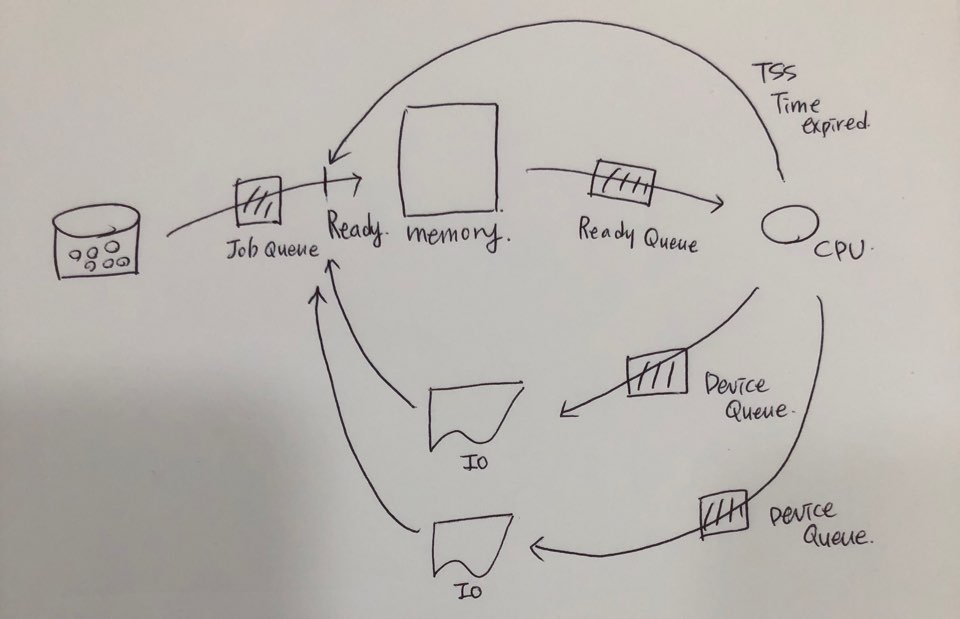 TSS
Time
expired.
Job Queue
Ready.
memory.
Ready Queue
CPU.
Device
Queue.
IO
Device
Queue.
IO